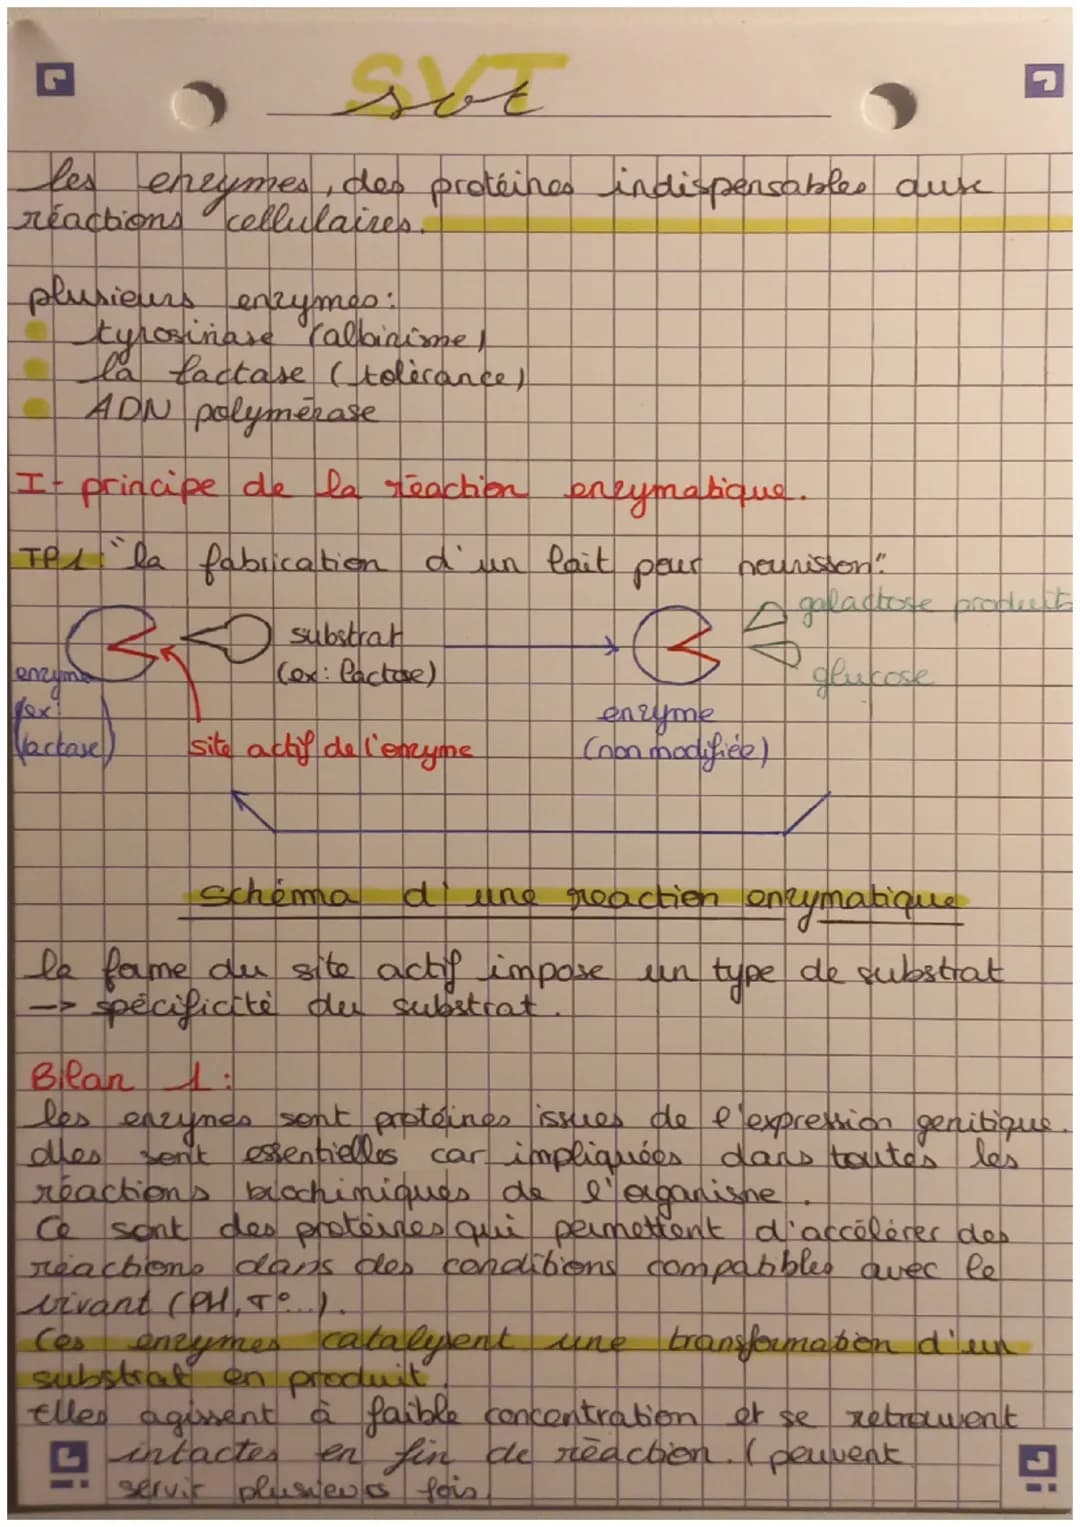 SVT
svt
les enzymes, des protéines indispensables aux
réactions cellulaires.
plusieurs enzymes:
tyrosinase (albinisme)
la lactase (tolérance)
ADN polymérase
I- principe de la réaction enzymatique.
TP1: "la fabrication d'un lait pour nourisson"
galactose produits
substrat
(ex: lactose)
glucose
enzyme
(ex:
lactase)
enzyme
(non modifiée)
site actif de l'enzyme
schéma d'une reaction enzymatique
la forme du site actif impose un type de substrat
-> spécificité du substrat.
Bilan 1:
les enzymes sont protéines issues de l'expression genitique.
elles sont essentielles car impliquées dans toutes les
réactions biochimiques de l'organisme.
Ce sont des protéines qui permettent d'accélérer des
réactions dans des conditions compatibles avec le
vivant (PH, T°...).
Ces enzymes catalysent une transformation d'un
substrat en produit.
Elles agissent à faible concentration et se retrouvent
intactes en fin de réaction. (peuvent
servir plusieurs fois)